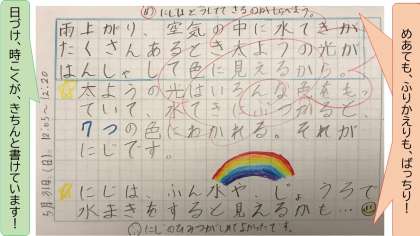 めあても、ふりかえりも、ばっちり！
め にじはどうしてできるのかしらべよう。
雨上がり、空気の中に水てきが
たくさんあるとき太ようの光が
はんしゃして色に見えるから。
太ようの光はいろんな色をもっ
ていて、水てきにぶつかると、
7つの色にわかれる。それが
にじです。
にじは、ふん水や、じょうろで
水まきをすると見えるかも…
にじのひみつがしれてよかったです。
5月31日(日) 12:05〜12:20
日づけ、時こくが、きちんと書けています！